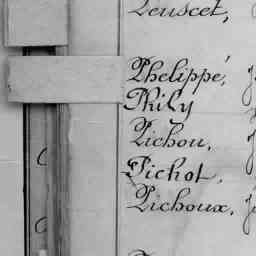 Peuscet,
Phelippé,
Phily
Pichou,
Pichot,
Pichoux,